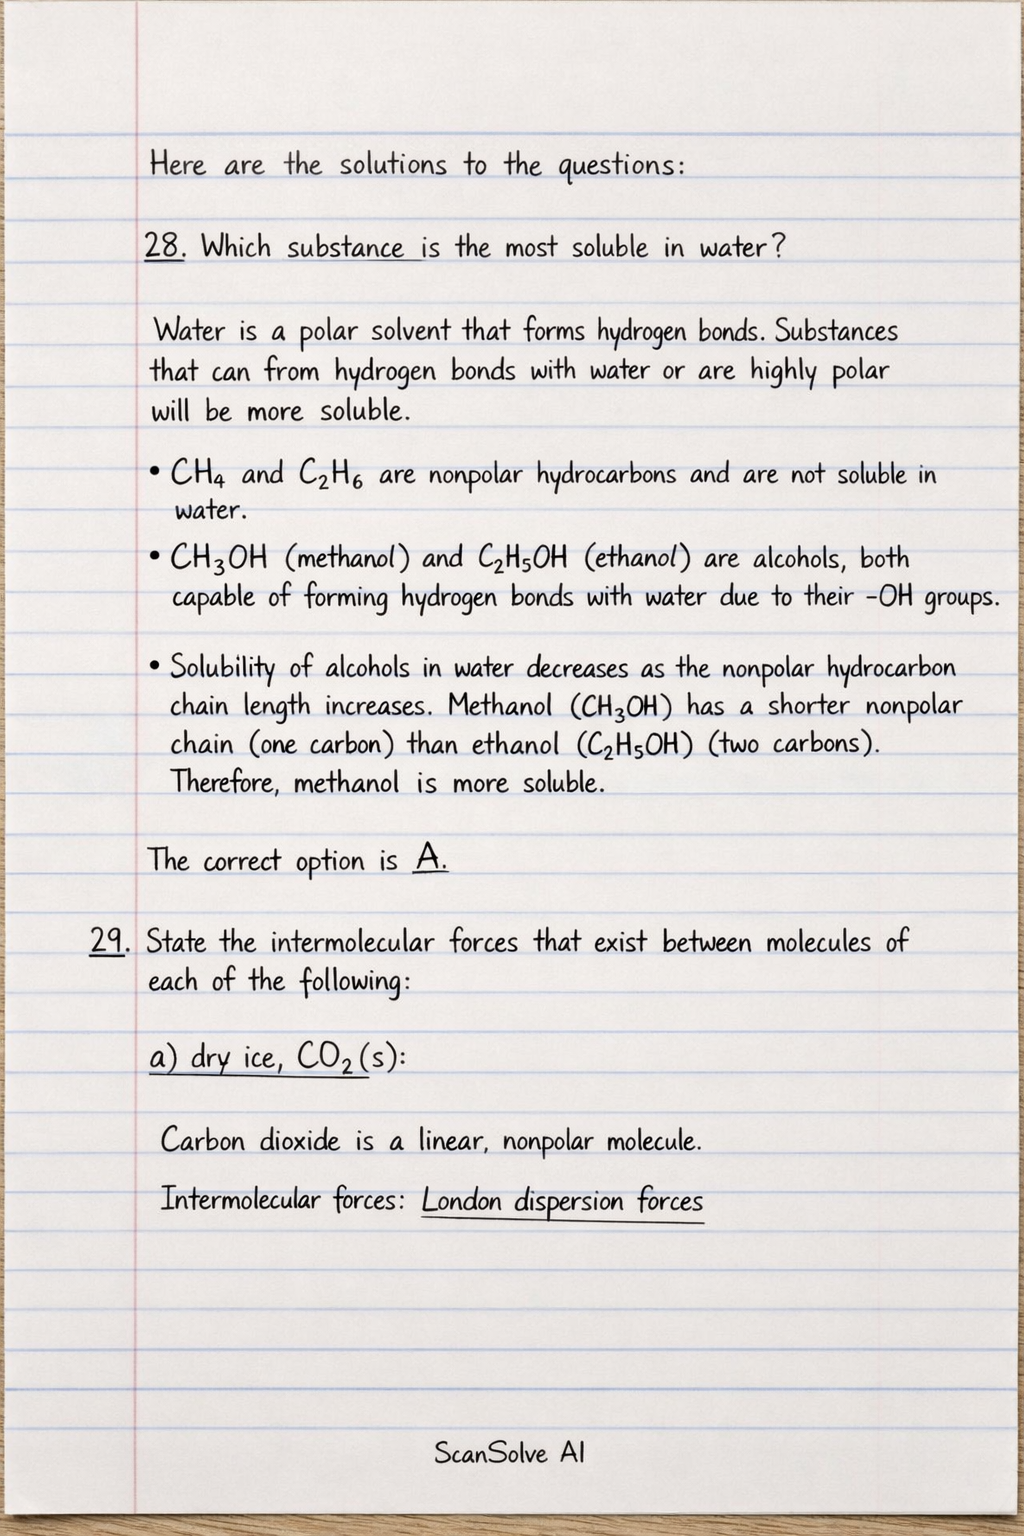 Here are the solutions to the questions:
28. Which substance is the most soluble in water?
Water is a polar solvent that forms hydrogen bonds. Substances
that can from hydrogen bonds with water or are highly polar
will be more soluble.
• CH₄ and C₂H₆ are nonpolar hydrocarbons and are not soluble in
water.
• CH₃OH (methanol) and C₂H₅OH (ethanol) are alcohols, both
capable of forming hydrogen bonds with water due to their -OH groups.
• Solubility of alcohols in water decreases as the nonpolar hydrocarbon
chain length increases. Methanol (CH₃OH) has a shorter nonpolar
chain (one carbon) than ethanol (C₂H₅OH) (two carbons).
Therefore, methanol is more soluble.
The correct option is A.
29. State the intermolecular forces that exist between molecules of
each of the following:
a) dry ice, CO₂(s):
Carbon dioxide is a linear, nonpolar molecule.
Intermolecular forces: London dispersion forces
ScanSolve AI